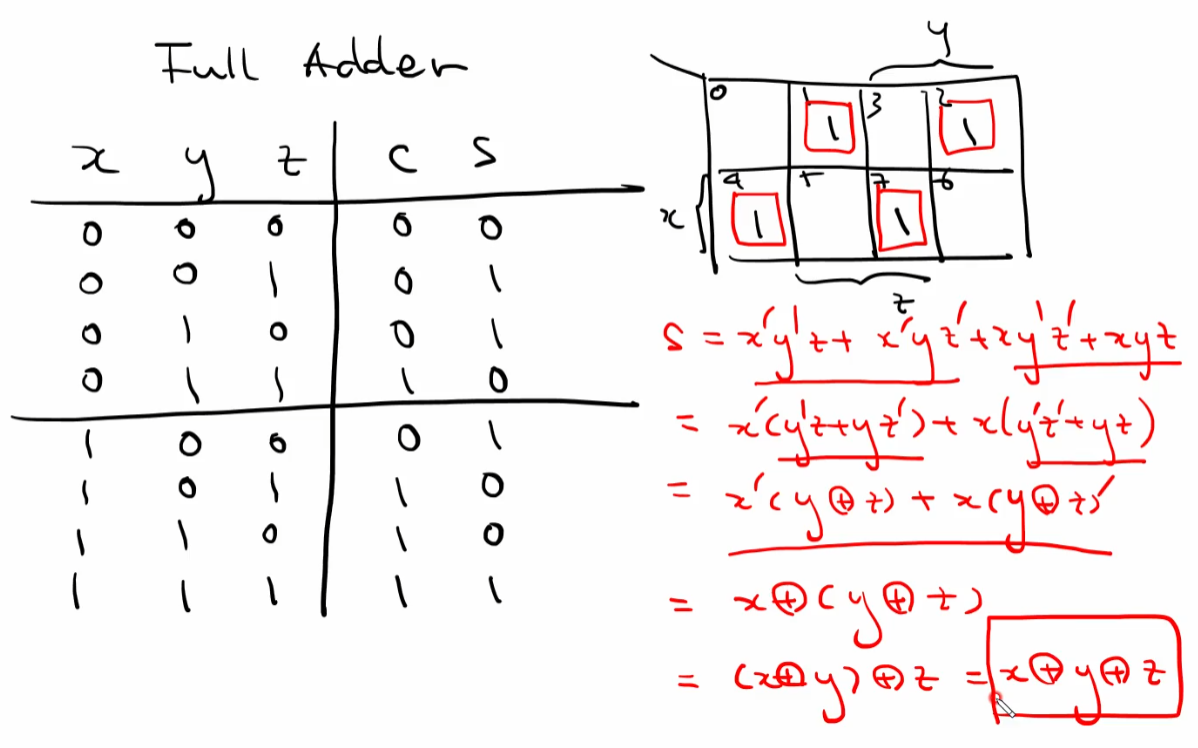 Full Adder
x y z c s
0 0 0 0 0
0 0 1 0 1
0 1 0 0 1
0 1 1 1 0
1 0 0 0 1
1 0 1 1 0
1 1 0 1 0
1 1 1 1 1
y
0 1 3 2
1 1
x 4 5 7 6
1 1
z
s = x'y'z + x'yz' + xy'z' + xyz
= x'(y'z+yz') + x(y'z'+yz)
= x'(y⊕z) + x(y⊕z)'
= x⊕(y⊕z)
= (x⊕y)⊕z = x⊕y⊕z